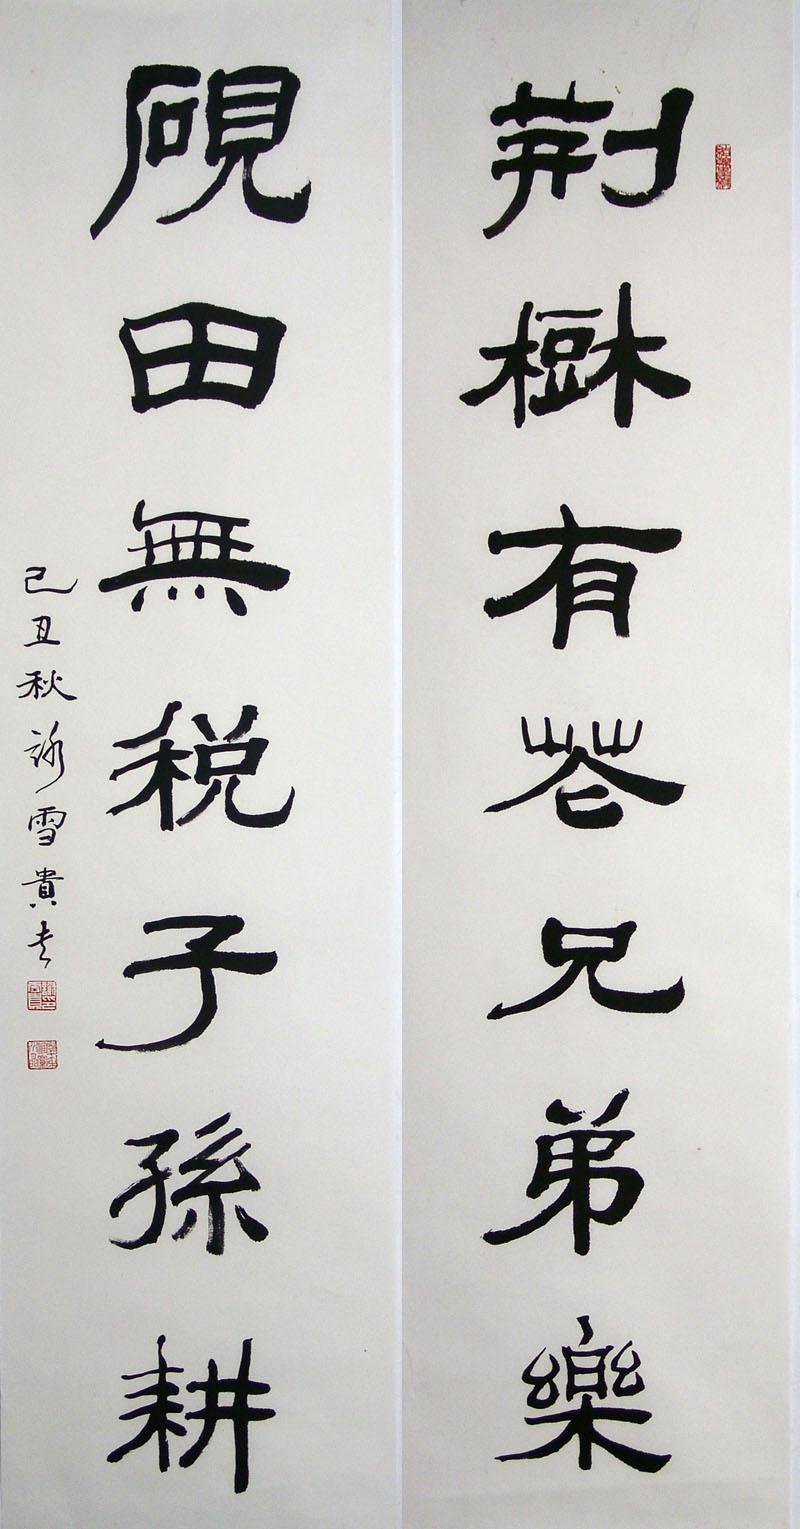 荊樹有花兄弟樂
硯田無税子孫耕
己丑秋詠雪貴夫